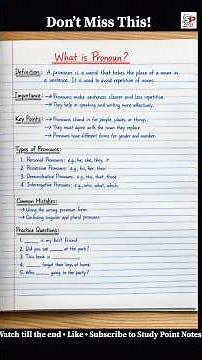 Don't Miss This!
What is Pronoun?
Definition: A pronoun is a word that takes the place of a noun in
a sentence. It is used to avoid repetition of nouns.
Importance: → Pronouns make sentences clearer and less repetitive.
→ They help in speaking and writing more effectively.
Key Points: → Pronouns stand in for people, places, or things.
→ They must agree with the noun they replace.
→ Pronouns have different forms for gender and number.
Types of Pronouns:
1. Personal Pronouns: e.g., he, she, they, it
2. Possessive Pronouns: e.g., his, her, their
3. Demonstrative Pronouns: e.g., this, that, those
4. Interrogative Pronouns: e.g., who, what, which
Common Mistakes:
→ Using the wrong pronoun form.
→ Confusing singular and plural pronouns.
Practice Questions:
1. _____ is my best friend.
2. Did you see _____ at the park?
3. This book is _____.
4. _____ forgot their keys at home.
5. Who _____ going to the party?
Watch till the end • Like • Subscribe to Study Point Notes